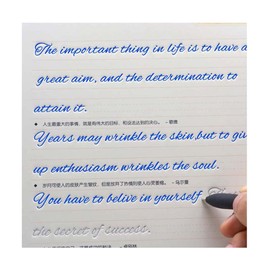 The important thing in life is to have a
great aim, and the determination to
attain it.
人生最重大的事情,就是有伟大的目标,和达到它的决心。 - 歌德
Years may wrinkle the skin,but to giv
up enthusiasm wrinkles the soul.
You have to belive in yourself
the secret of success.